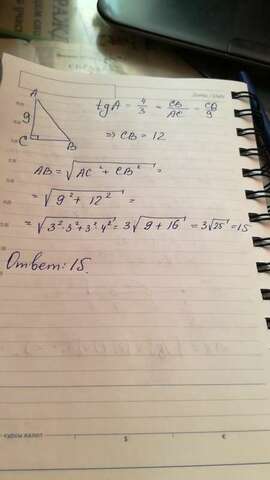 A
9
C
B
tg A = 4/3 = CB/AC = CB/9
⇒ CB = 12
AB = √(AC² + CB²) =
= √(9² + 12²) =
= √(3²·3² + 3²·4²) = 3√(9 + 16) = 3√25 = 15
Ответ: 15.
$
€